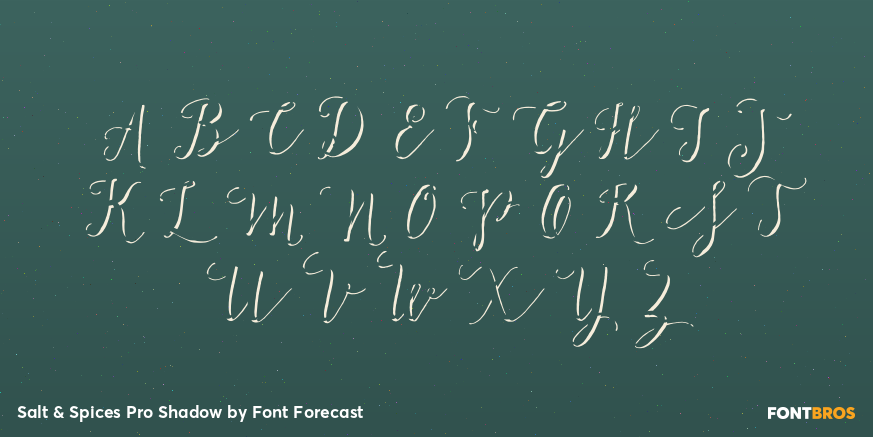 A B C D E F G H I J
K L M N O P Q R S T
U V W X Y Z
Salt & Spices Pro Shadow by Font Forecast
FONTBROS